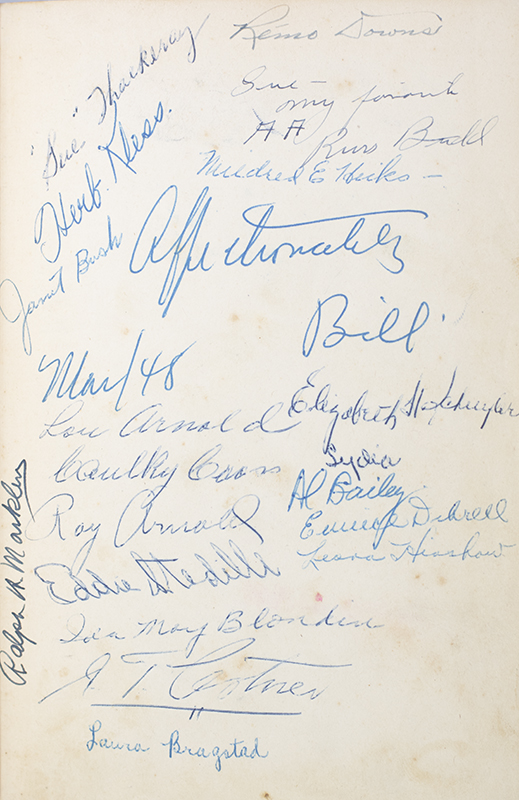 Remo Downs
"Sue" Thackeray
Sue -
my favorite
AA
Budd
Herb. Kless.
Mildred E Hicks -
Janet Bush
Affectionately
Bill.
Mar/48
Lou Arnold
Elizabeth
Lydia
Caulky Coons
Al Bailey.
Roy Arnold
Eunice Dibrell
Leora Hinshaw
Eddie
Ralph M Marklen
Ida May Blonden
Laura Bragstad